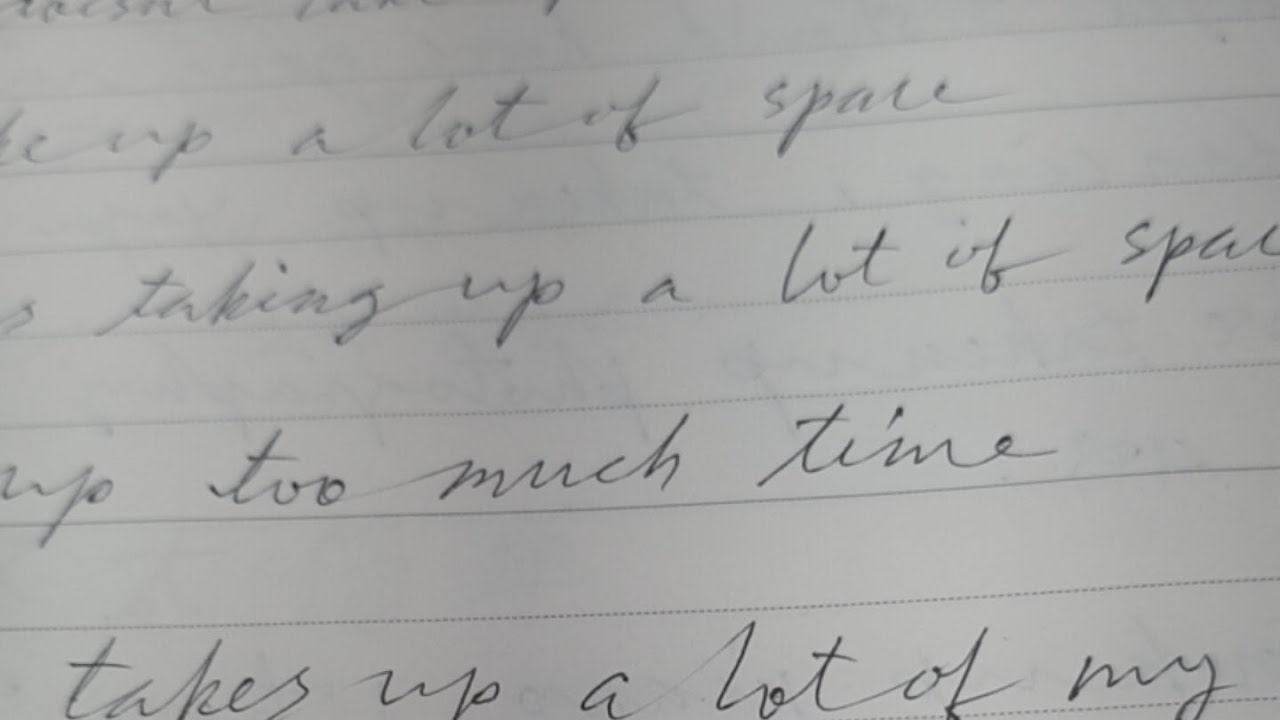 ke up a lot of space
s taking up a lot of spac
up too much time
takes up a lot of my